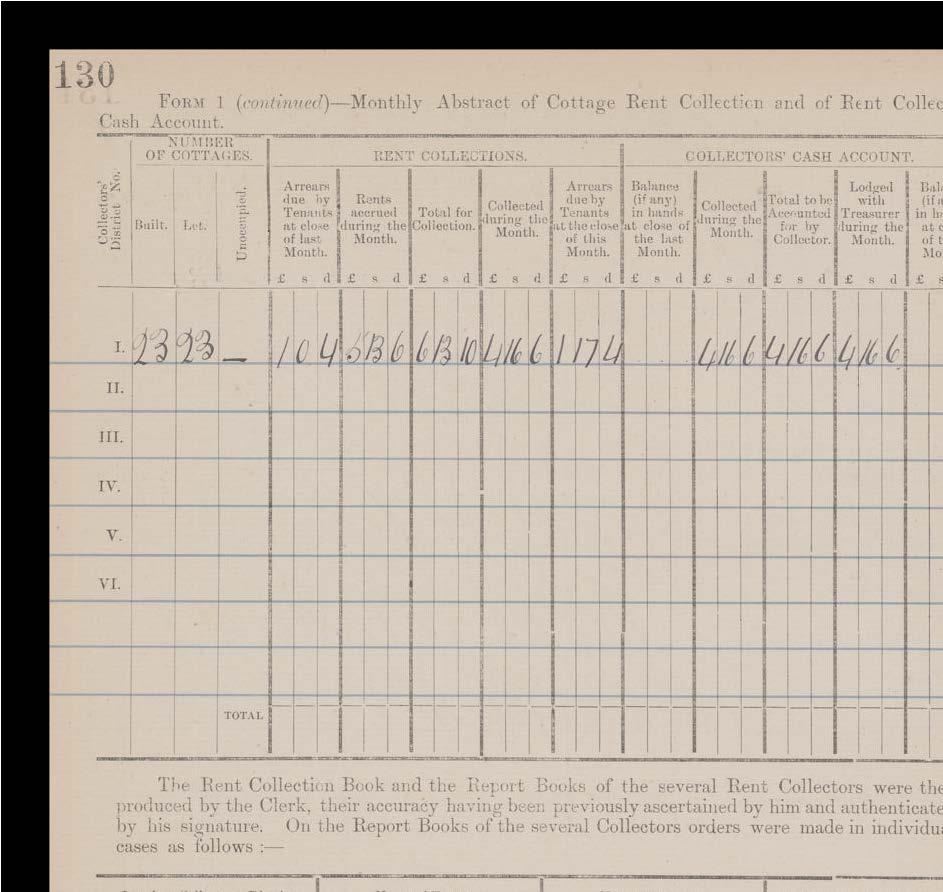 130
FORM 1 (continued)—Monthly Abstract of Cottage Rent Collection and of Rent Collec
Cash Account.
Collectors' District No.
NUMBER OF COTTAGES.
RENT COLLECTIONS.
COLLECTORS' CASH ACCOUNT.
Built.
Let.
Unoccupied.
Arrears due by Tenants at close of last Month.
Rents accrued during the Month.
Total for Collection.
Collected during the Month.
Arrears due by Tenants at the close of this Month.
Balance (if any) in hands at close of the last Month.
Collected during the Month.
Total to be Accounted for by Collector.
Lodged with Treasurer during the Month.
£ s d £ s d £ s d £ s d £ s d £ s d £ s d £ s d £ s d £ s
I. 23 23 — 1 0 4 5 13 6 6 13 10 4 16 6 1 17 4 4 16 6 4 16 6 4 16 6
II.
III.
IV.
V.
VI.
TOTAL
The Rent Collection Book and the Report Books of the several Rent Collectors were the
produced by the Clerk, their accuracy having been previously ascertained by him and authenticate
by his signature. On the Report Books of the several Collectors orders were made in individua
cases as follows :—